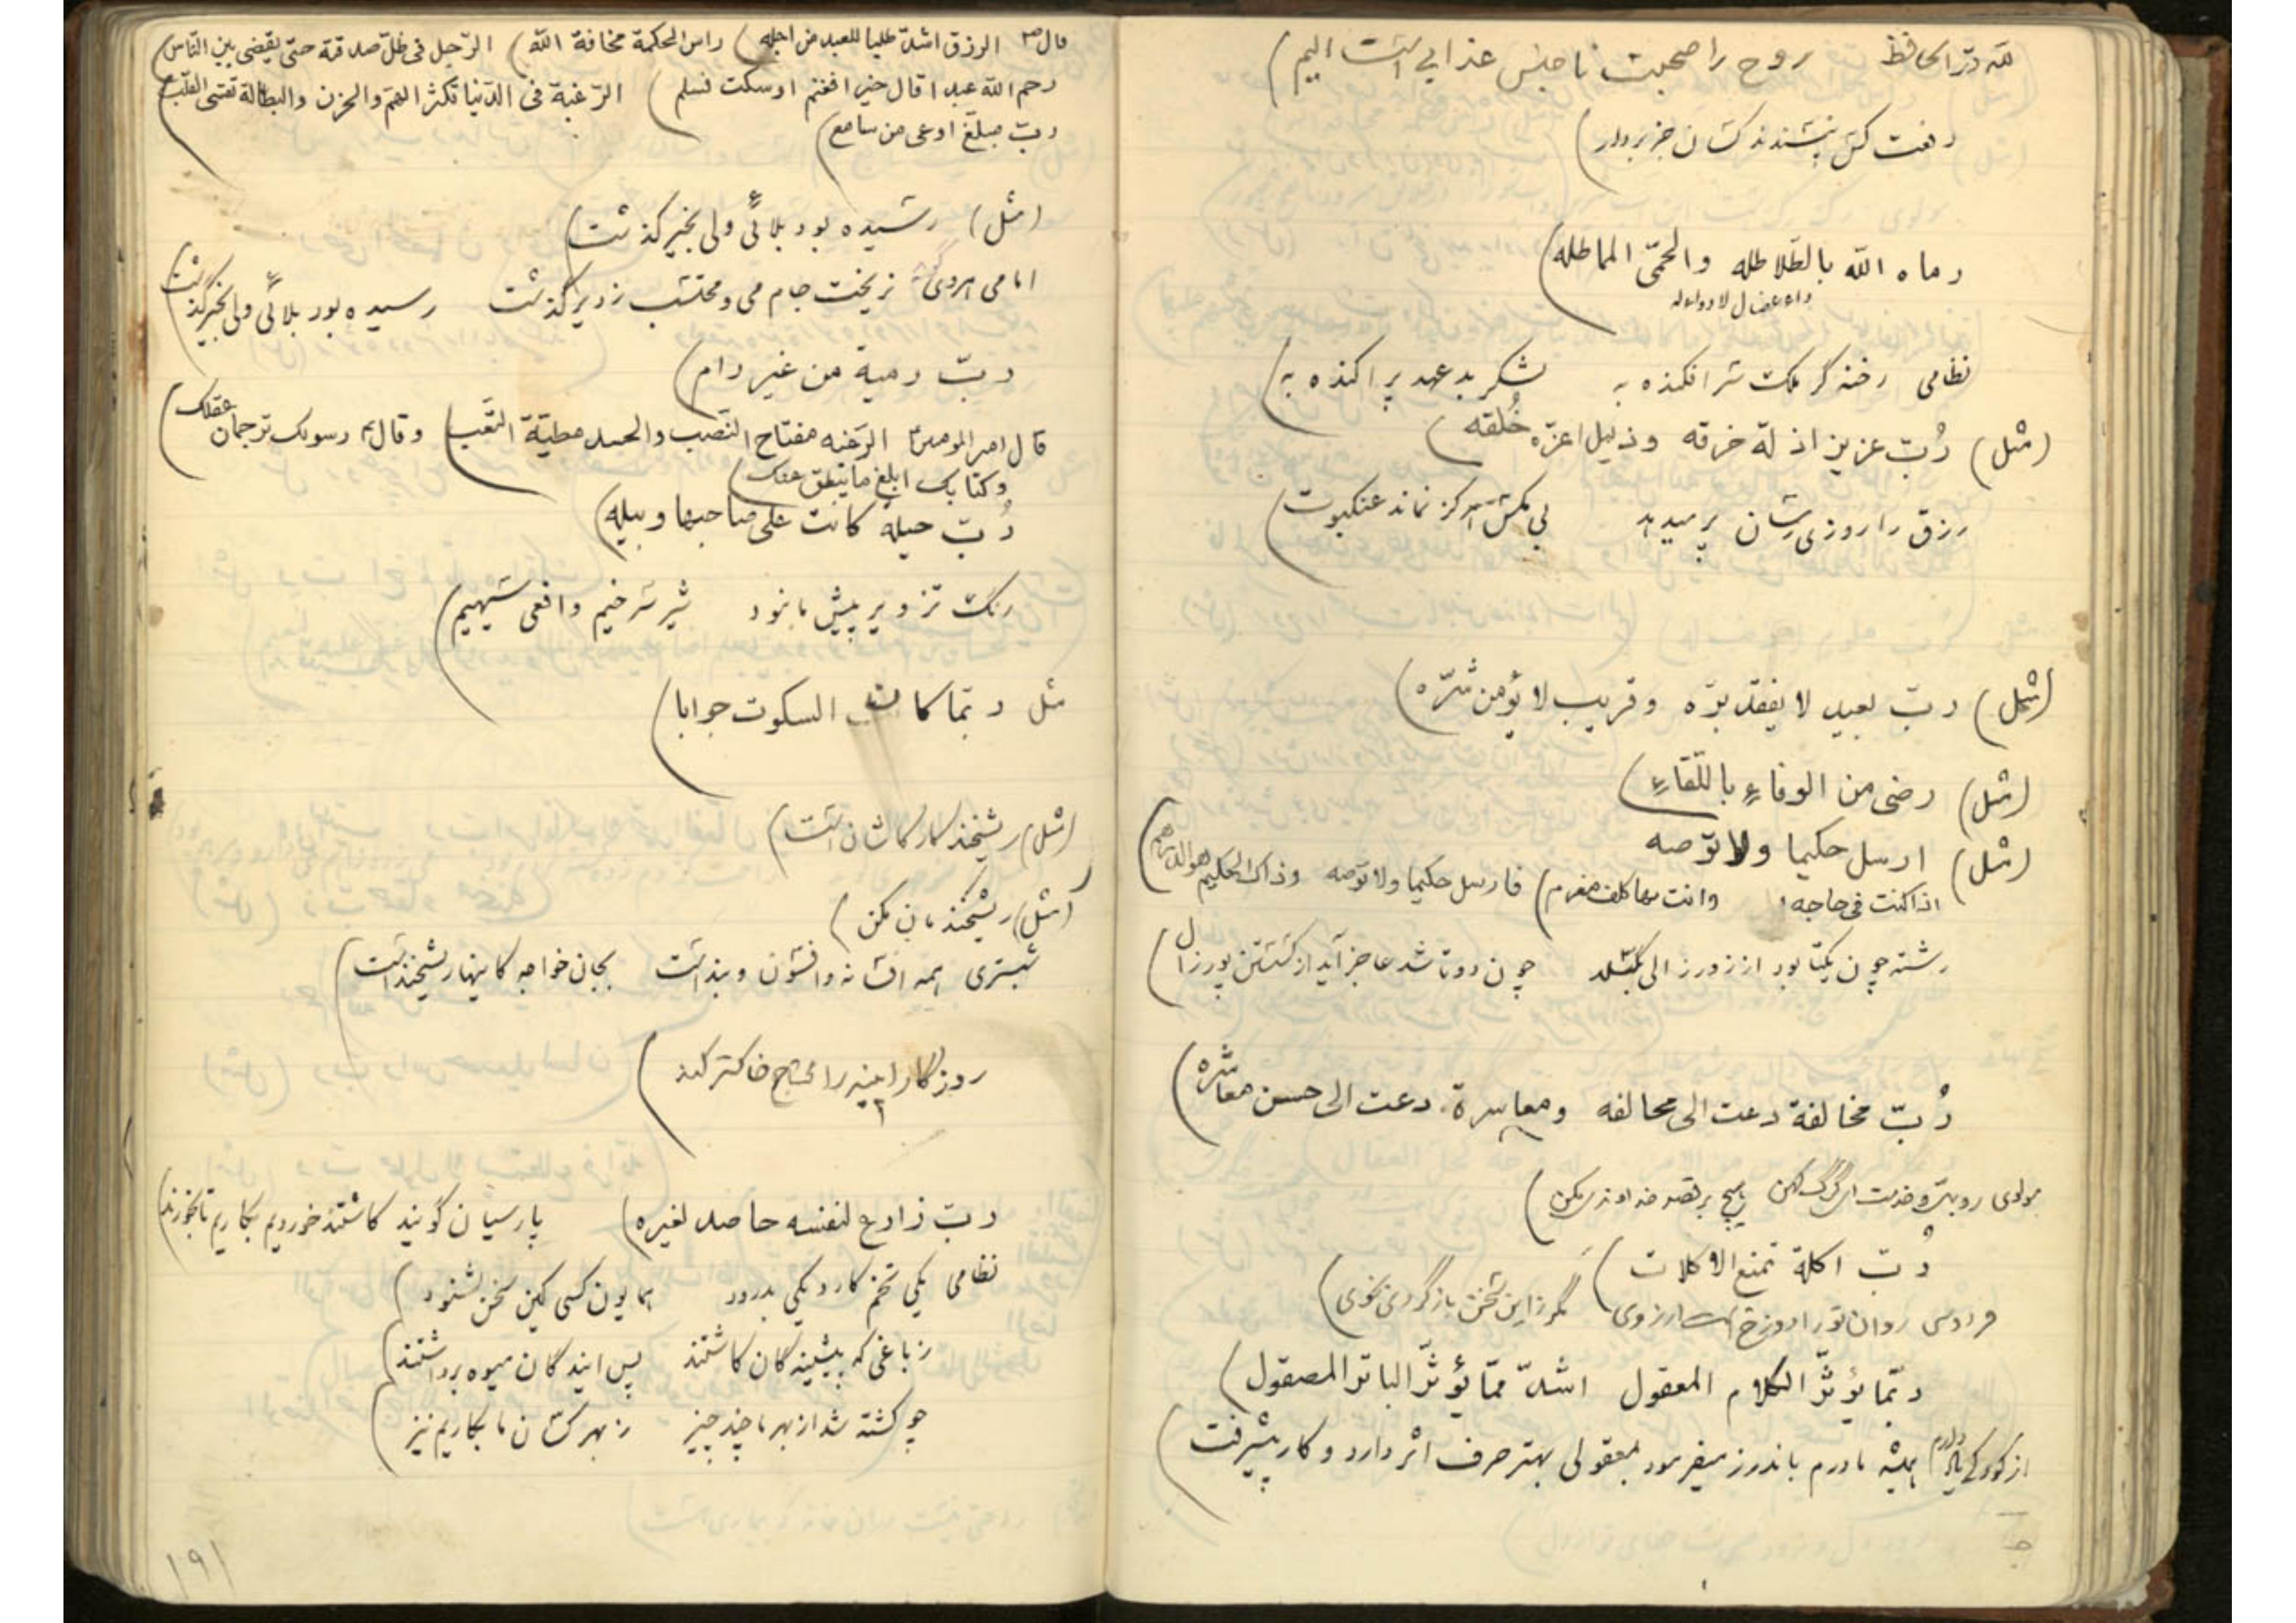 للّه درّ الحافظ روح را صحبت ناجنس عذابی است الیم
رخت کش نپسندند کسان جز بردار
رماه اللّه بالطّلاطله والحمّی المماطله
داء عضال لا دواء له
نظامی رخنه گر ملک سرافکنده به لشکر بدعهد پراکنده به
(مثل) رُبّ عزیز اذلّه خرقه وذلیل اعزّه خُلقه
رزق را روزی رسان پر میدهد بی مکس هرگز نماند عنکبوت
(مثل) ربّ بعید لا یفقد برّه وقریب لا یؤمن شرّه
(مثل) رضی من الوفاءِ باللّقاءِ
(مثل) ارسل حکیما ولا توصه
اذا کنت فی حاجه وانت بها کلف مغرم فارسل حکیما ولا توصه وذاک الحکیم هو الدرهم
رشته چون یکتا بود از زور زالی بگسلد چون دوتا شد عاجز آید از گسستن پور زال
رُبّ مخالفة دعت الی محالفه ومعاسرة دعت الی حسن معاشره
مولوی رو بترس و خدمت آن گرگ کهن هیچ بر قصد خداوندی مکن
رُبّ اکلة تمنع الاکلات
فردوسی روان تو را دوزخ است آرزوی مگر زاین سخن بازگردی بخوی
ربّما یؤثّر الکلام المعقول اشدّ ممّا یؤثّر الباتر المصقول
از کودکی یاد دارم همیشه مادرم باندرز میفرمود بمعقولی بهتر حرف اثر دارد و کار پیشرفت
قال ص الرزق اشدّ طلبا للعبد من اجله راس الحکمة مخافة اللّه الرّجل فی ظلّ صدقة حتّی یقضی بین النّاس
رحم اللّه عبدا قال خیرا فغنم او سکت فسلم الرّغبة فی الدّنیا تکثر الهمّ والحزن والبطالة تقسی القلب
ربّ مبلّغ اوعی من سامع
(مثل) رسیده بود بلائی ولی بخیر گذشت
امامی هروی گفته نریخت جام می و محتسب ز دیر گذشت رسیده بود بلائی ولی بخیر گذشت
ربّ رمیة من غیر رام
قال امیر المومنین الرّغبه مفتاح النّصب والحسد مطیّة التّعب وقال ع رسولک ترجمان عقلک
وکتابک ابلغ ما ینطق عنک
رُبّ حیلهٍ کانت علی صاحبها وبیله
رنگ تزویر پیش ما نبود شیر سرخیم و افعی سیهیم
مثل ربّما کان السکوت جوابا
(مثل) ریشخند کار کاشان است
(مثل) ریشخندمان مکن
شبستری همه افسانه وافسون وبند است بجان خواجه کاینها ریشخند است
روزگار آئینه را محتاج خاکستر کند
ربّ زارع لنفسه حاصد لغیره پارسیان گویند کاشتند خوردیم بکاریم تا بخورند
نظامی یکی تخم کارد یکی بدرود همایون کسی کین سخن بشنود
ز باغی که پیشینه گان کاشتند پس آیندگان میوه برداشتند
چو کشته شد از بهر ما چند چیز ز بهر کسان ما بکاریم نیز
۱۹۱